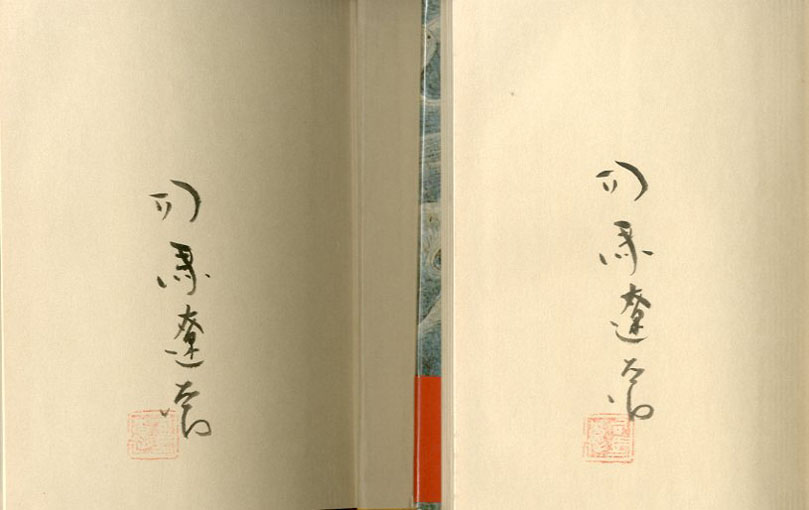 司馬遼太郎
司馬遼太郎